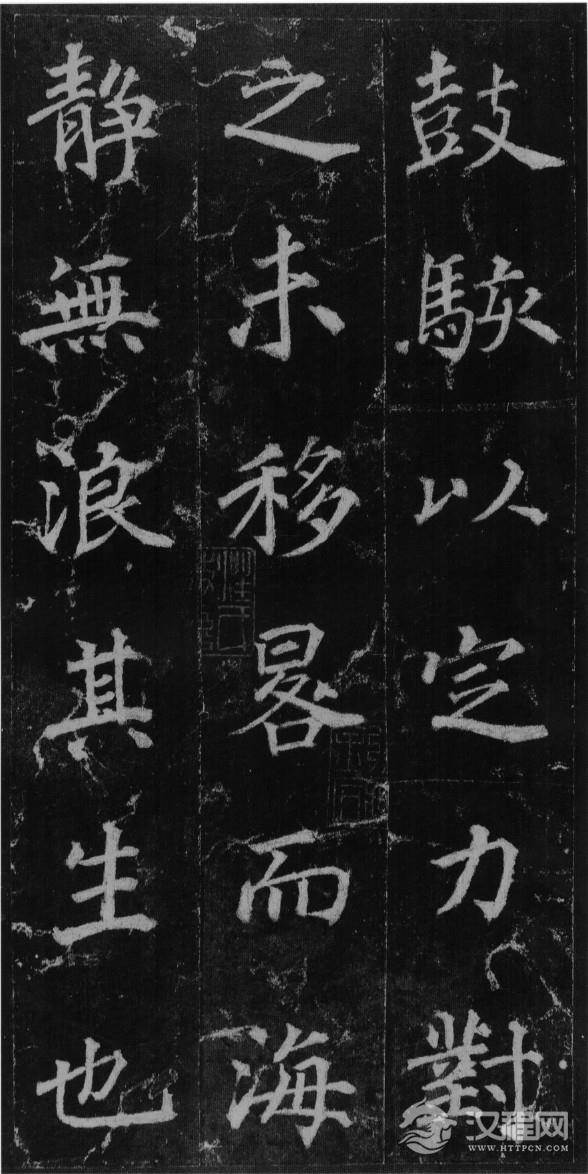 鼓駭以定力對
之未移晷而海
静無浪其生也
汉程网
WWW.HTTPCN.COM